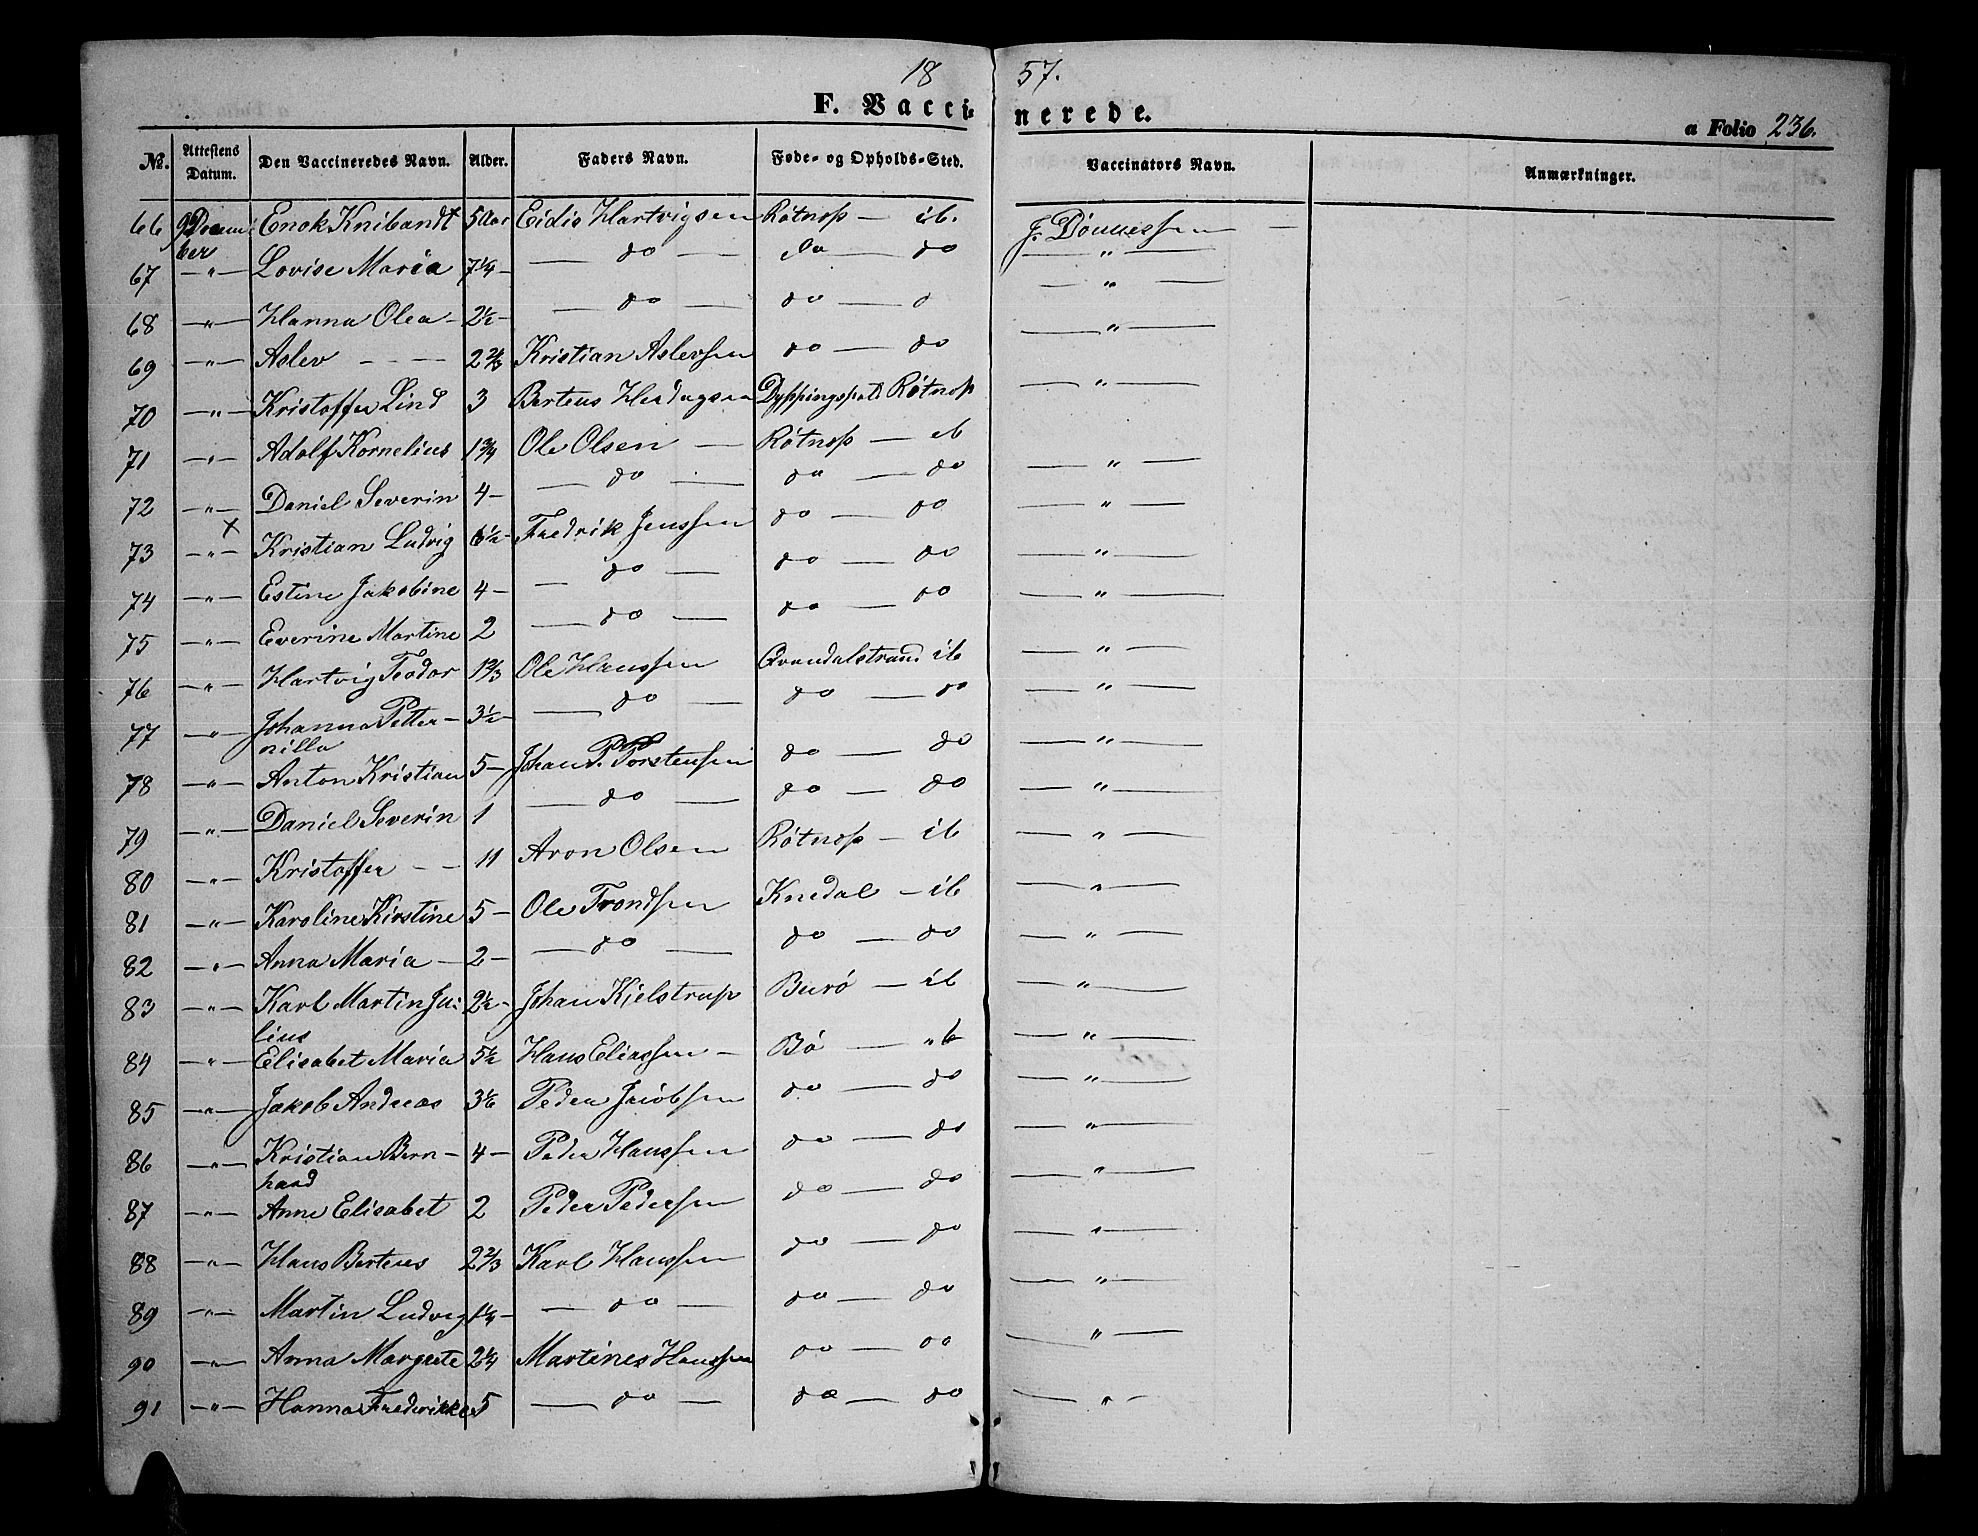 18 57.
F. Vacci- nerede.
a Folio 236.
No. Attestens Datum. Den Vaccineredes Navn. Alder. Faders Navn. Føde- og Opholds-Sted. Vaccinators Navn. Anmærkninger.
66 Enok Aar Hartvigsen Røtnøp — ib.
67 —"— Lovise Maria 7¼ — do — do do — " —
68 —"— Hanna Olea - 2½ — do — do — — " —
69 —"— Aslev — 2 Kristian Aslevsen do — do — " —
70 —"— Kristoffer Lind 3 Røtnøp — " —
71 —"— Adolf Kornelius 1¾ Ole Olsen — Røtnøp — ib — " —
72 —"— Daniel Severin 4 — do — do — do — " —
73 —"— x Kristian Ludvig 6½ Fredrik Jenssen do — do — " —
74 —"— Estine Jakobine 4 — do — do — do — " —
75 —"— Everine Martine 2 — do — do — do — " —
76 —"— Hartvig Teodor 1⅔ Ole Hanssen ib — " —
77 —"— Johanna Petter-
nilla 3½ — do — do — do — " —
78 —"— Anton Kristian 5 — Johan P. Torstensen do — do — " —
79 —"— Daniel Severin 1 — do — do — do — " —
80 —"— Kristoffer — 11 Aron Olsen Røtnøp — ib — " —
81 —"— Karoline Kirstine 5 — Ole Trondsen Knedal — ib — " —
82 —"— Anna Maria — 2 — — do — do — do — " —
83 —"— Karl Martin Ju:
lius 2½ Johan Kjelstrup Burø — ib — " —
84 —"— Elisabet Maria 5½ Hans Eliassen — Bø — ib — " —
85 —"— Jakob Andreas 3⅙ Peder Jacobsen do — do — " —
86 —"— Kristian Bern-
hard 4 — Peder Hanssen do — do — " —
87 —"— Anne Elisabet 2 Peder Pedersen do — do — " —
88 —"— Hans Berteus 2⅔ Karl Hanssen do — do — " —
89 —"— Martin Ludvig 1¼ — do — do — do — " —
90 —"— Anna Margrete 2¼ Martines Hanssen do — do — " —
91 —"— Hanna Frederikke 5 — do — do — do — " —